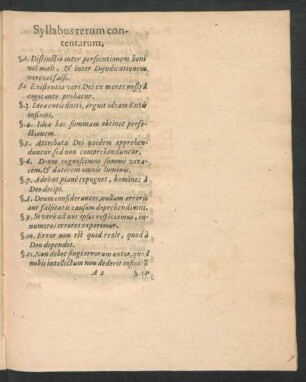 Syllabus rerum con-
tentarum.
§.1. Distinctio inter persecutionem boni
vel mali, & inter Dijudicationem
veri vel falsi.
§.2. Existentia veri Dei ex mente nostrâ
cogitante probatur.
§.3. Idea entis finiti, arguit ideam Entis
infiniti.
§.4. Idea hæc summam obtinet perfe-
ctionem.
§.5. Attributa Dei quidem apprehen-
duntur, sed non comprehenduntur.
§.6. Deum cognoscimus summè vera-
cem, & datorem omnis luminis.
§.7. A deo ut planè repugnet, homines à
Deo decipi.
§.8. Deum considerantes, nullam erroris
aut falsitatis causam deprehendimus.
§.9. Si verò ad nos ipsos respicimus, in-
numeros errores experimur.
§.10. Error non est quid reale, quod à
Deo dependet.
§.11. Non debet fingi errorum autor, quod
nobis intellectum non dederit
A 2